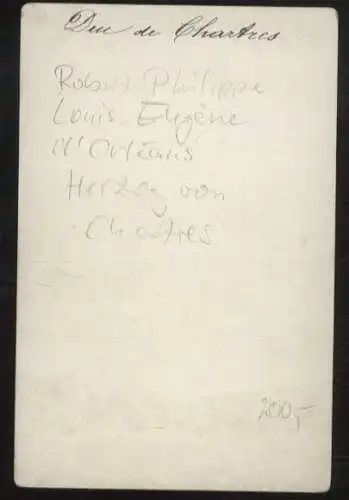 Duc de Chartres
Robert Philippe
Louis Eugène
d'Orléans
Herzog von
Chartres
200,-